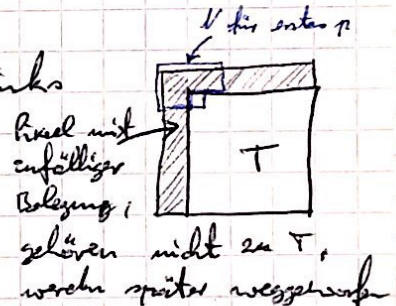 N für erstes p
links
Pixel mit
zufälliger
Belegung,
T
gehören nicht zu T,
werden später weggeworfen